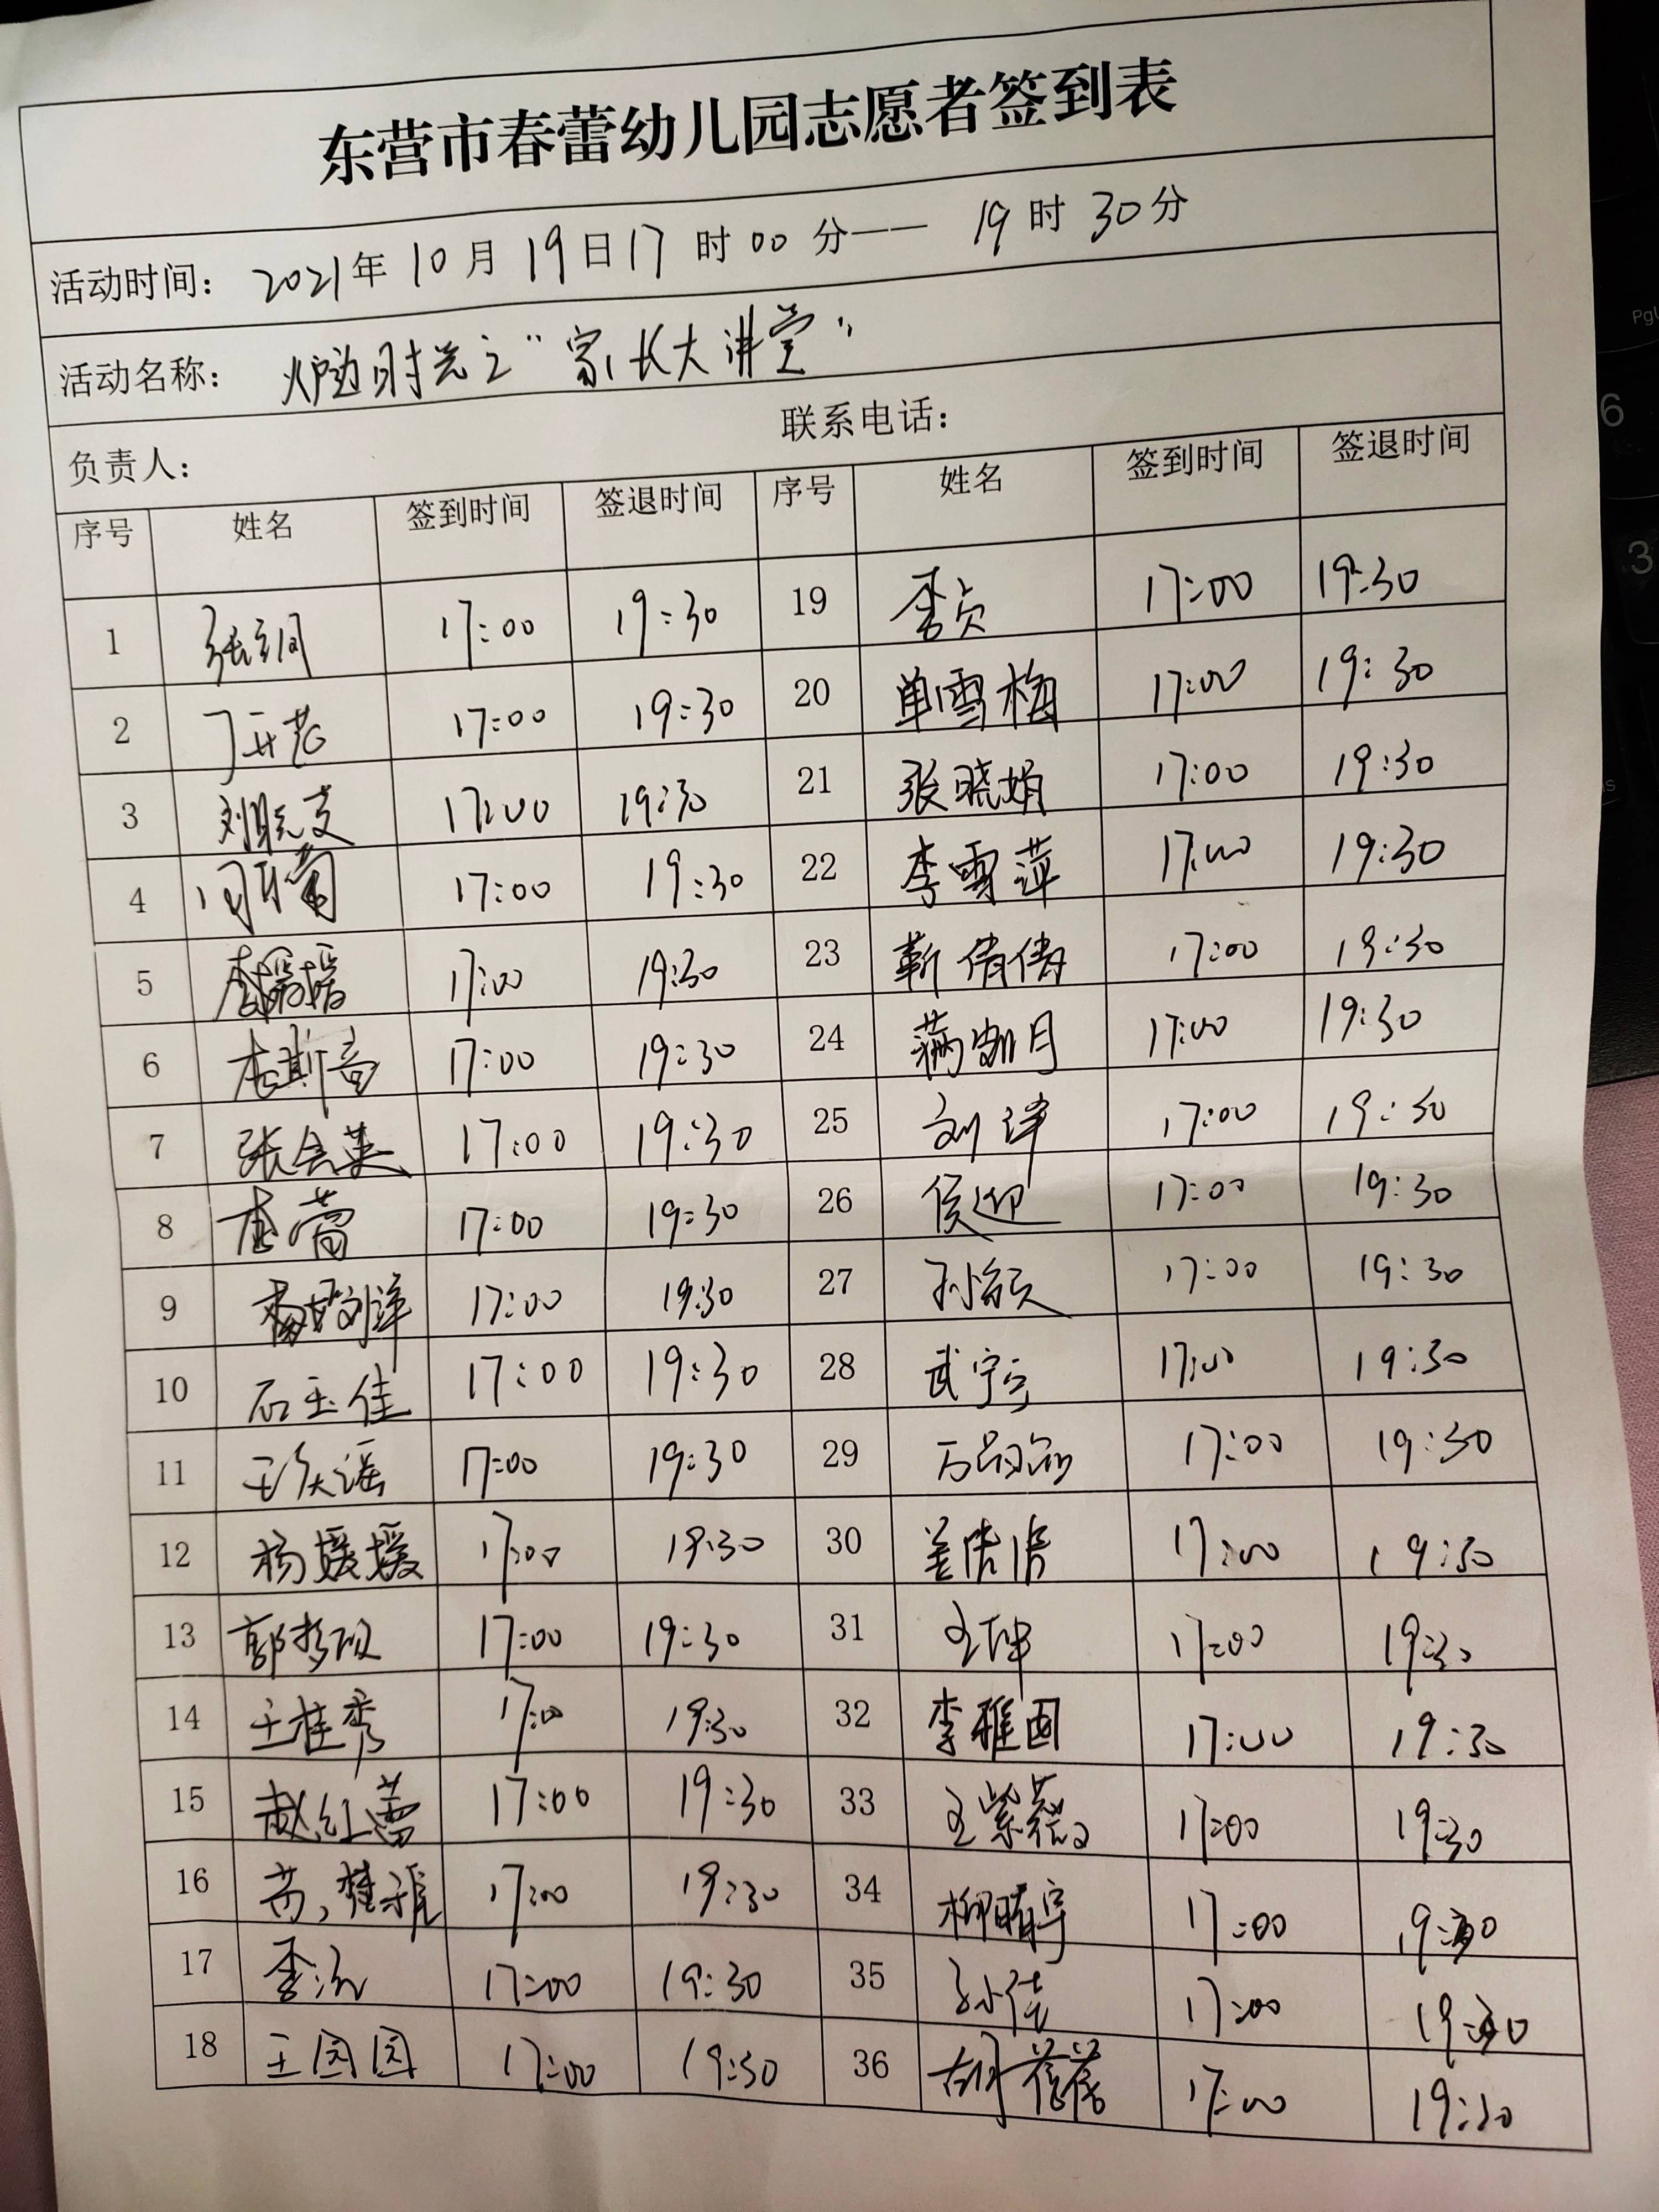 东营市春蕾幼儿园志愿者签到表
活动时间: 2021年 10月 19日 17时 00分—— 19时 30分
活动名称: 炉边时光之"家长大讲堂"
负责人: 联系电话:
序号 姓名 签到时间 签退时间 序号 姓名 签到时间 签退时间
1 17:00 19:30 19 李贞 17:00 19:30
2 17:00 19:30 20 单雪梅 17:00 19:30
3 17:00 19:30 21 张晓娟 17:00 19:30
4 17:00 19:30 22 李雪萍 17:00 19:30
5 17:00 19:30 23 靳倩倩 17:00 19:30
6 17:00 19:30 24 17:00 19:30
7 张会英 17:00 19:30 25 刘洋 17:00 19:30
8 17:00 19:30 26 侯迎 17:00 19:30
9 刘洋 17:00 19:30 27 17:00 19:30
10 石玉佳 17:00 19:30 28 武宁宁 17:00 19:30
11 17:00 19:30 29 17:00 19:30
12 杨媛媛 17:00 19:30 30 姜倩倩 17:00 19:30
13 17:00 19:30 31 王坤 17:00 19:30
14 王桂秀 17:00 19:30 32 17:00 19:30
15 赵红蕾 17:00 19:30 33 王紫薇 17:00 19:30
16 17:00 19:30 34 柳晴宇 17:00 19:30
17 17:00 19:30 35 孙倩 17:00 19:30
18 王园园 17:00 19:30 36 胡蓓蓓 17:00 19:30